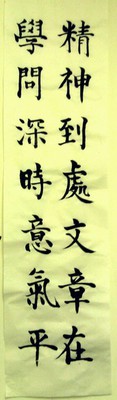 精神到處文章在
學問深時意氣平